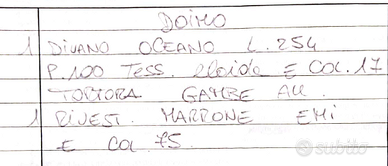 DOIMO
1 DIVANO OCEANO L. 254
P. 100 TESS. E COL. 17
TORTORA GAMBE ALL.
1 RIVEST. MARRONE EMI
E COL 75.
subito